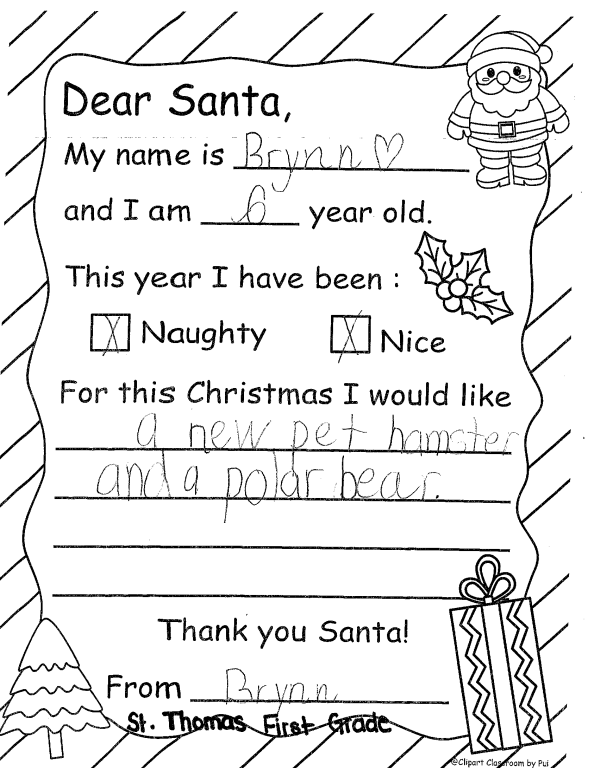 Dear Santa,
My name is Brynn♡
and I am 6 year old.
This year I have been :
☒ Naughty ☒ Nice
For this Christmas I would like
a new pet hamster
and a polar bear.
Thank you Santa!
From Brynn
St. Thomas First Grade
@Clipart Classroom by Pui